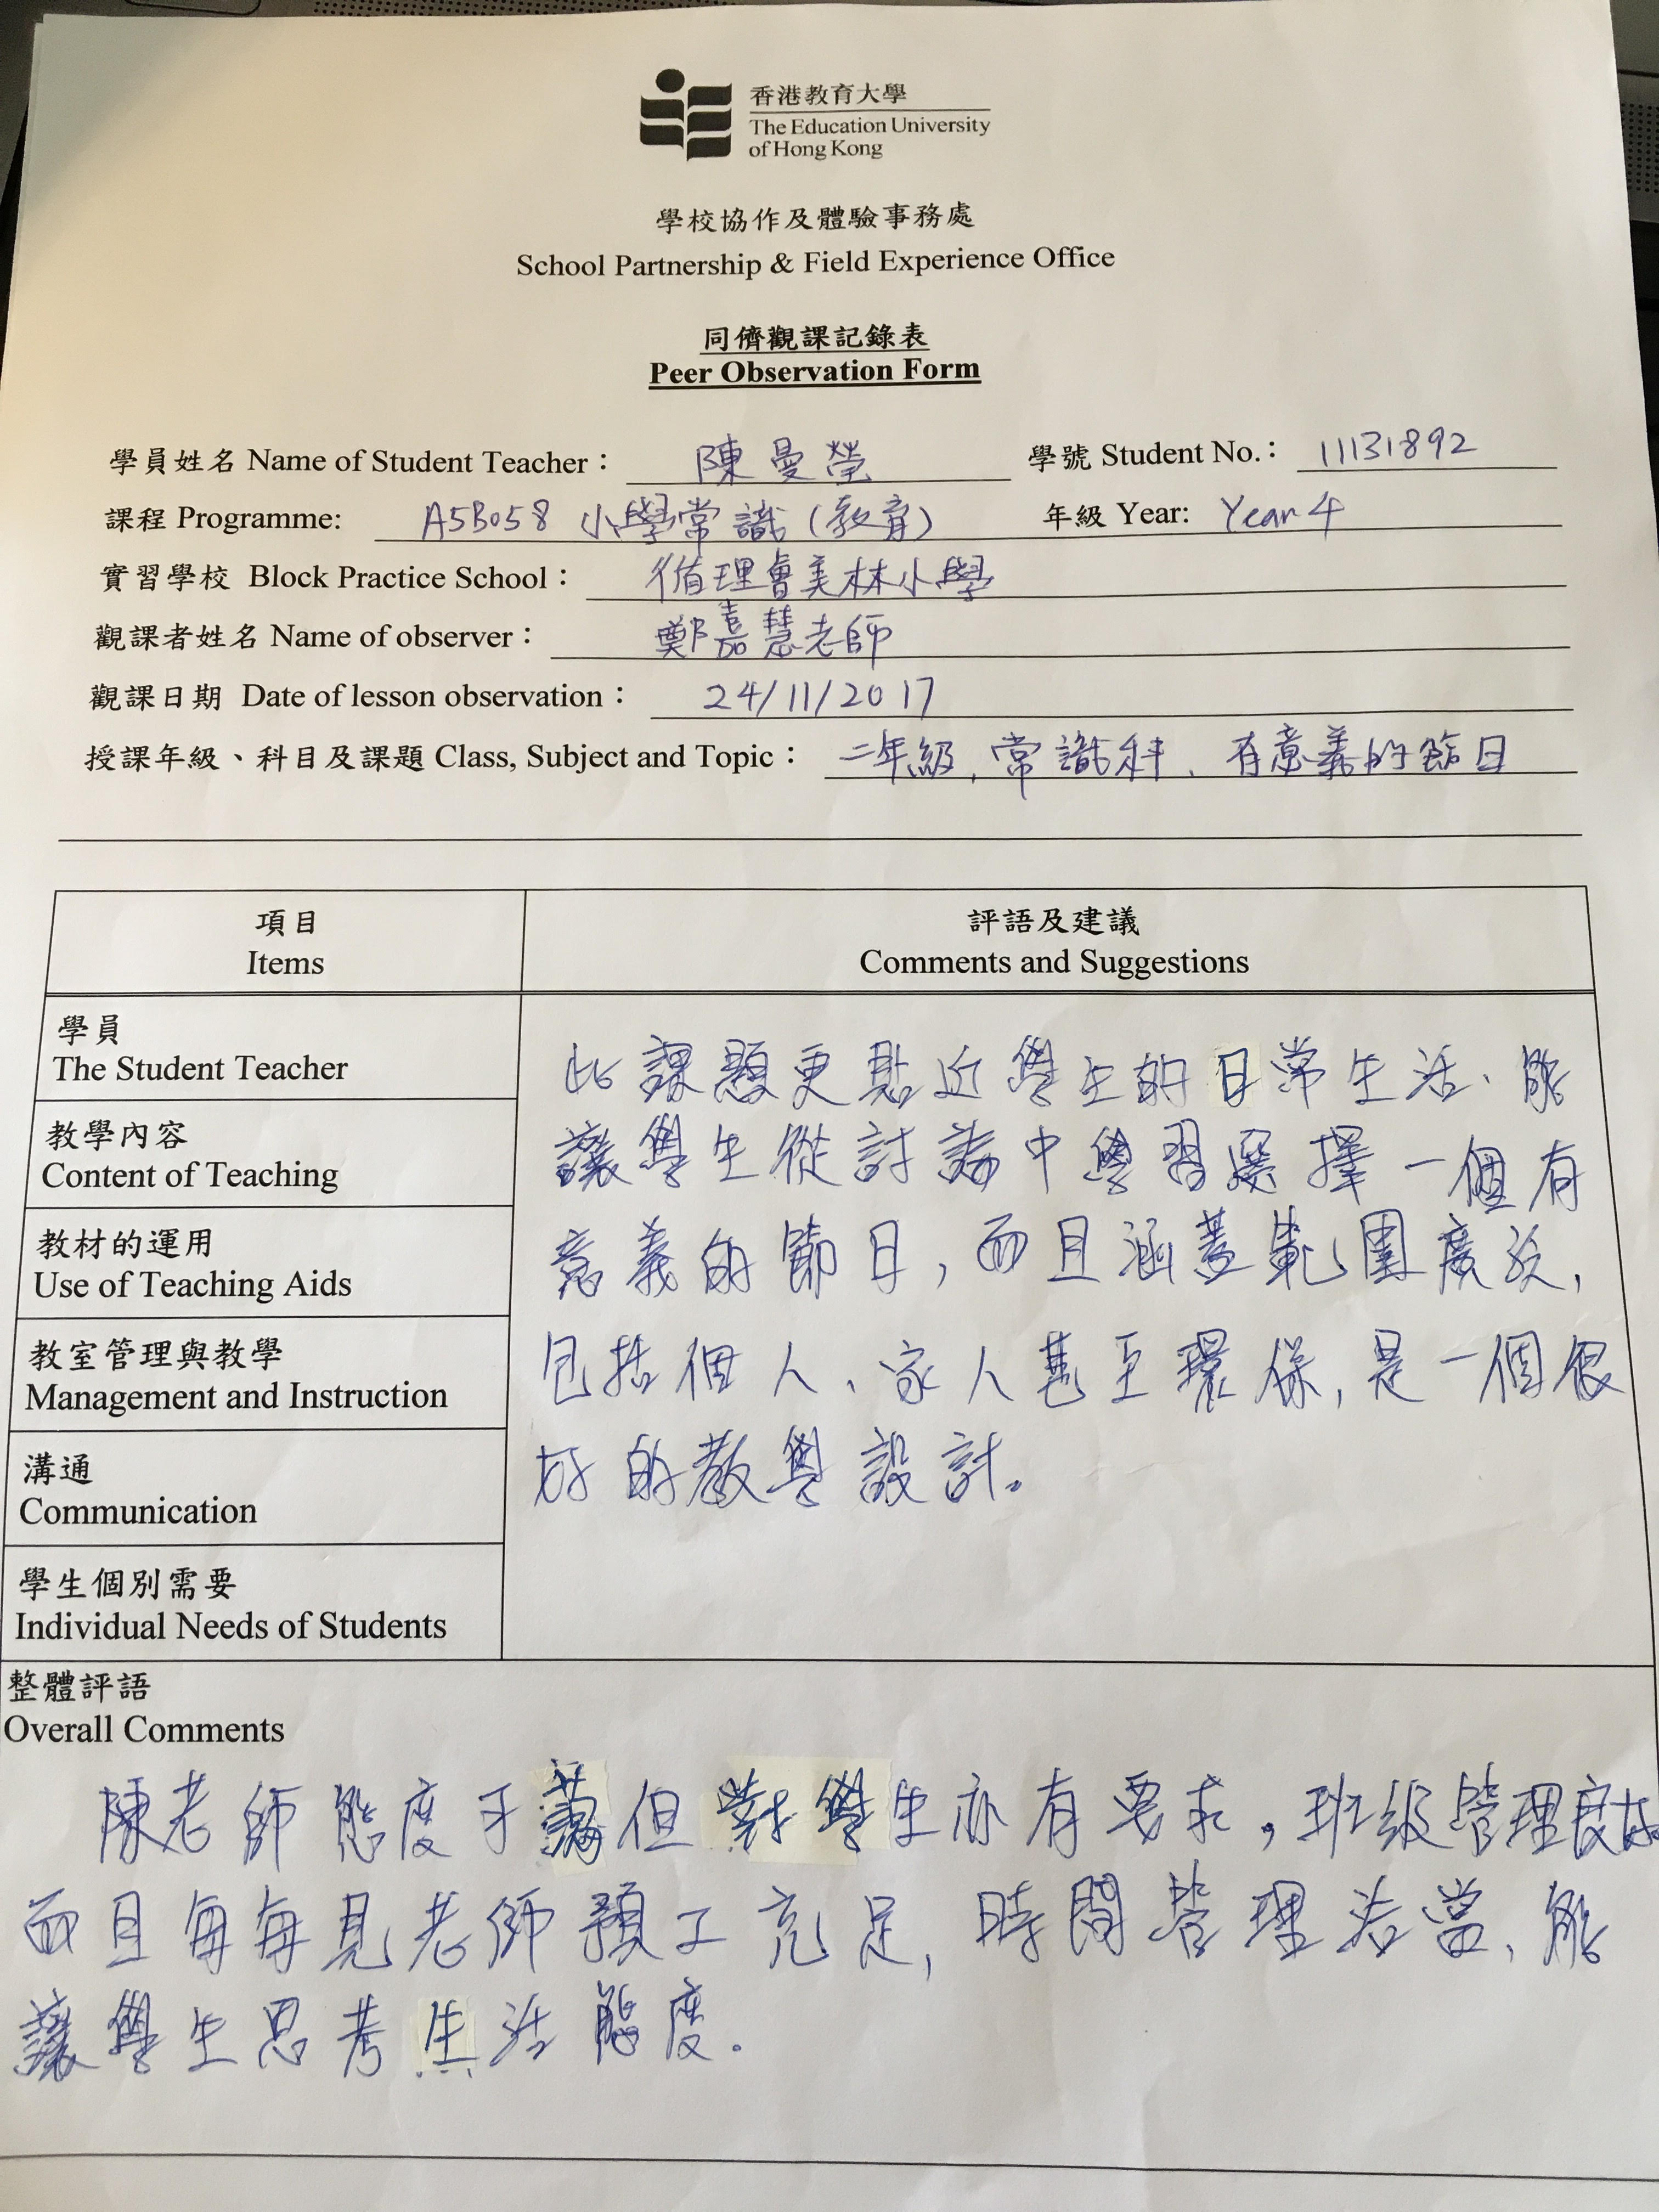 香港教育大學
The Education University
of Hong Kong
學校協作及體驗事務處
School Partnership & Field Experience Office
同儕觀課記錄表
Peer Observation Form
學員姓名 Name of Student Teacher： 陳曼瑩 學號 Student No.： 11131892
課程 Programme: A5B058 小學常識（教育） 年級 Year: Year 4
實習學校 Block Practice School： 循理會美林小學
觀課者姓名 Name of observer： 鄭嘉慧老師
觀課日期 Date of lesson observation： 24/11/2017
授課年級、科目及課題 Class, Subject and Topic： 二年級、常識科、有意義的節日
項目
Items
評語及建議
Comments and Suggestions
學員
The Student Teacher
教學內容
Content of Teaching
教材的運用
Use of Teaching Aids
教室管理與教學
Management and Instruction
溝通
Communication
學生個別需要
Individual Needs of Students
此課題更貼近學生的日常生活、能
讓學生從討論中學習選擇一個有
意義的節日，而且涵蓋範圍廣泛，
包括個人、家人甚至環保，是一個很
好的教學設計。
整體評語
Overall Comments
陳老師態度但對學生亦有要求，班級管理良好
而且每每見老師預工充足，時間管理洽當、能
讓學生思考生活態度。